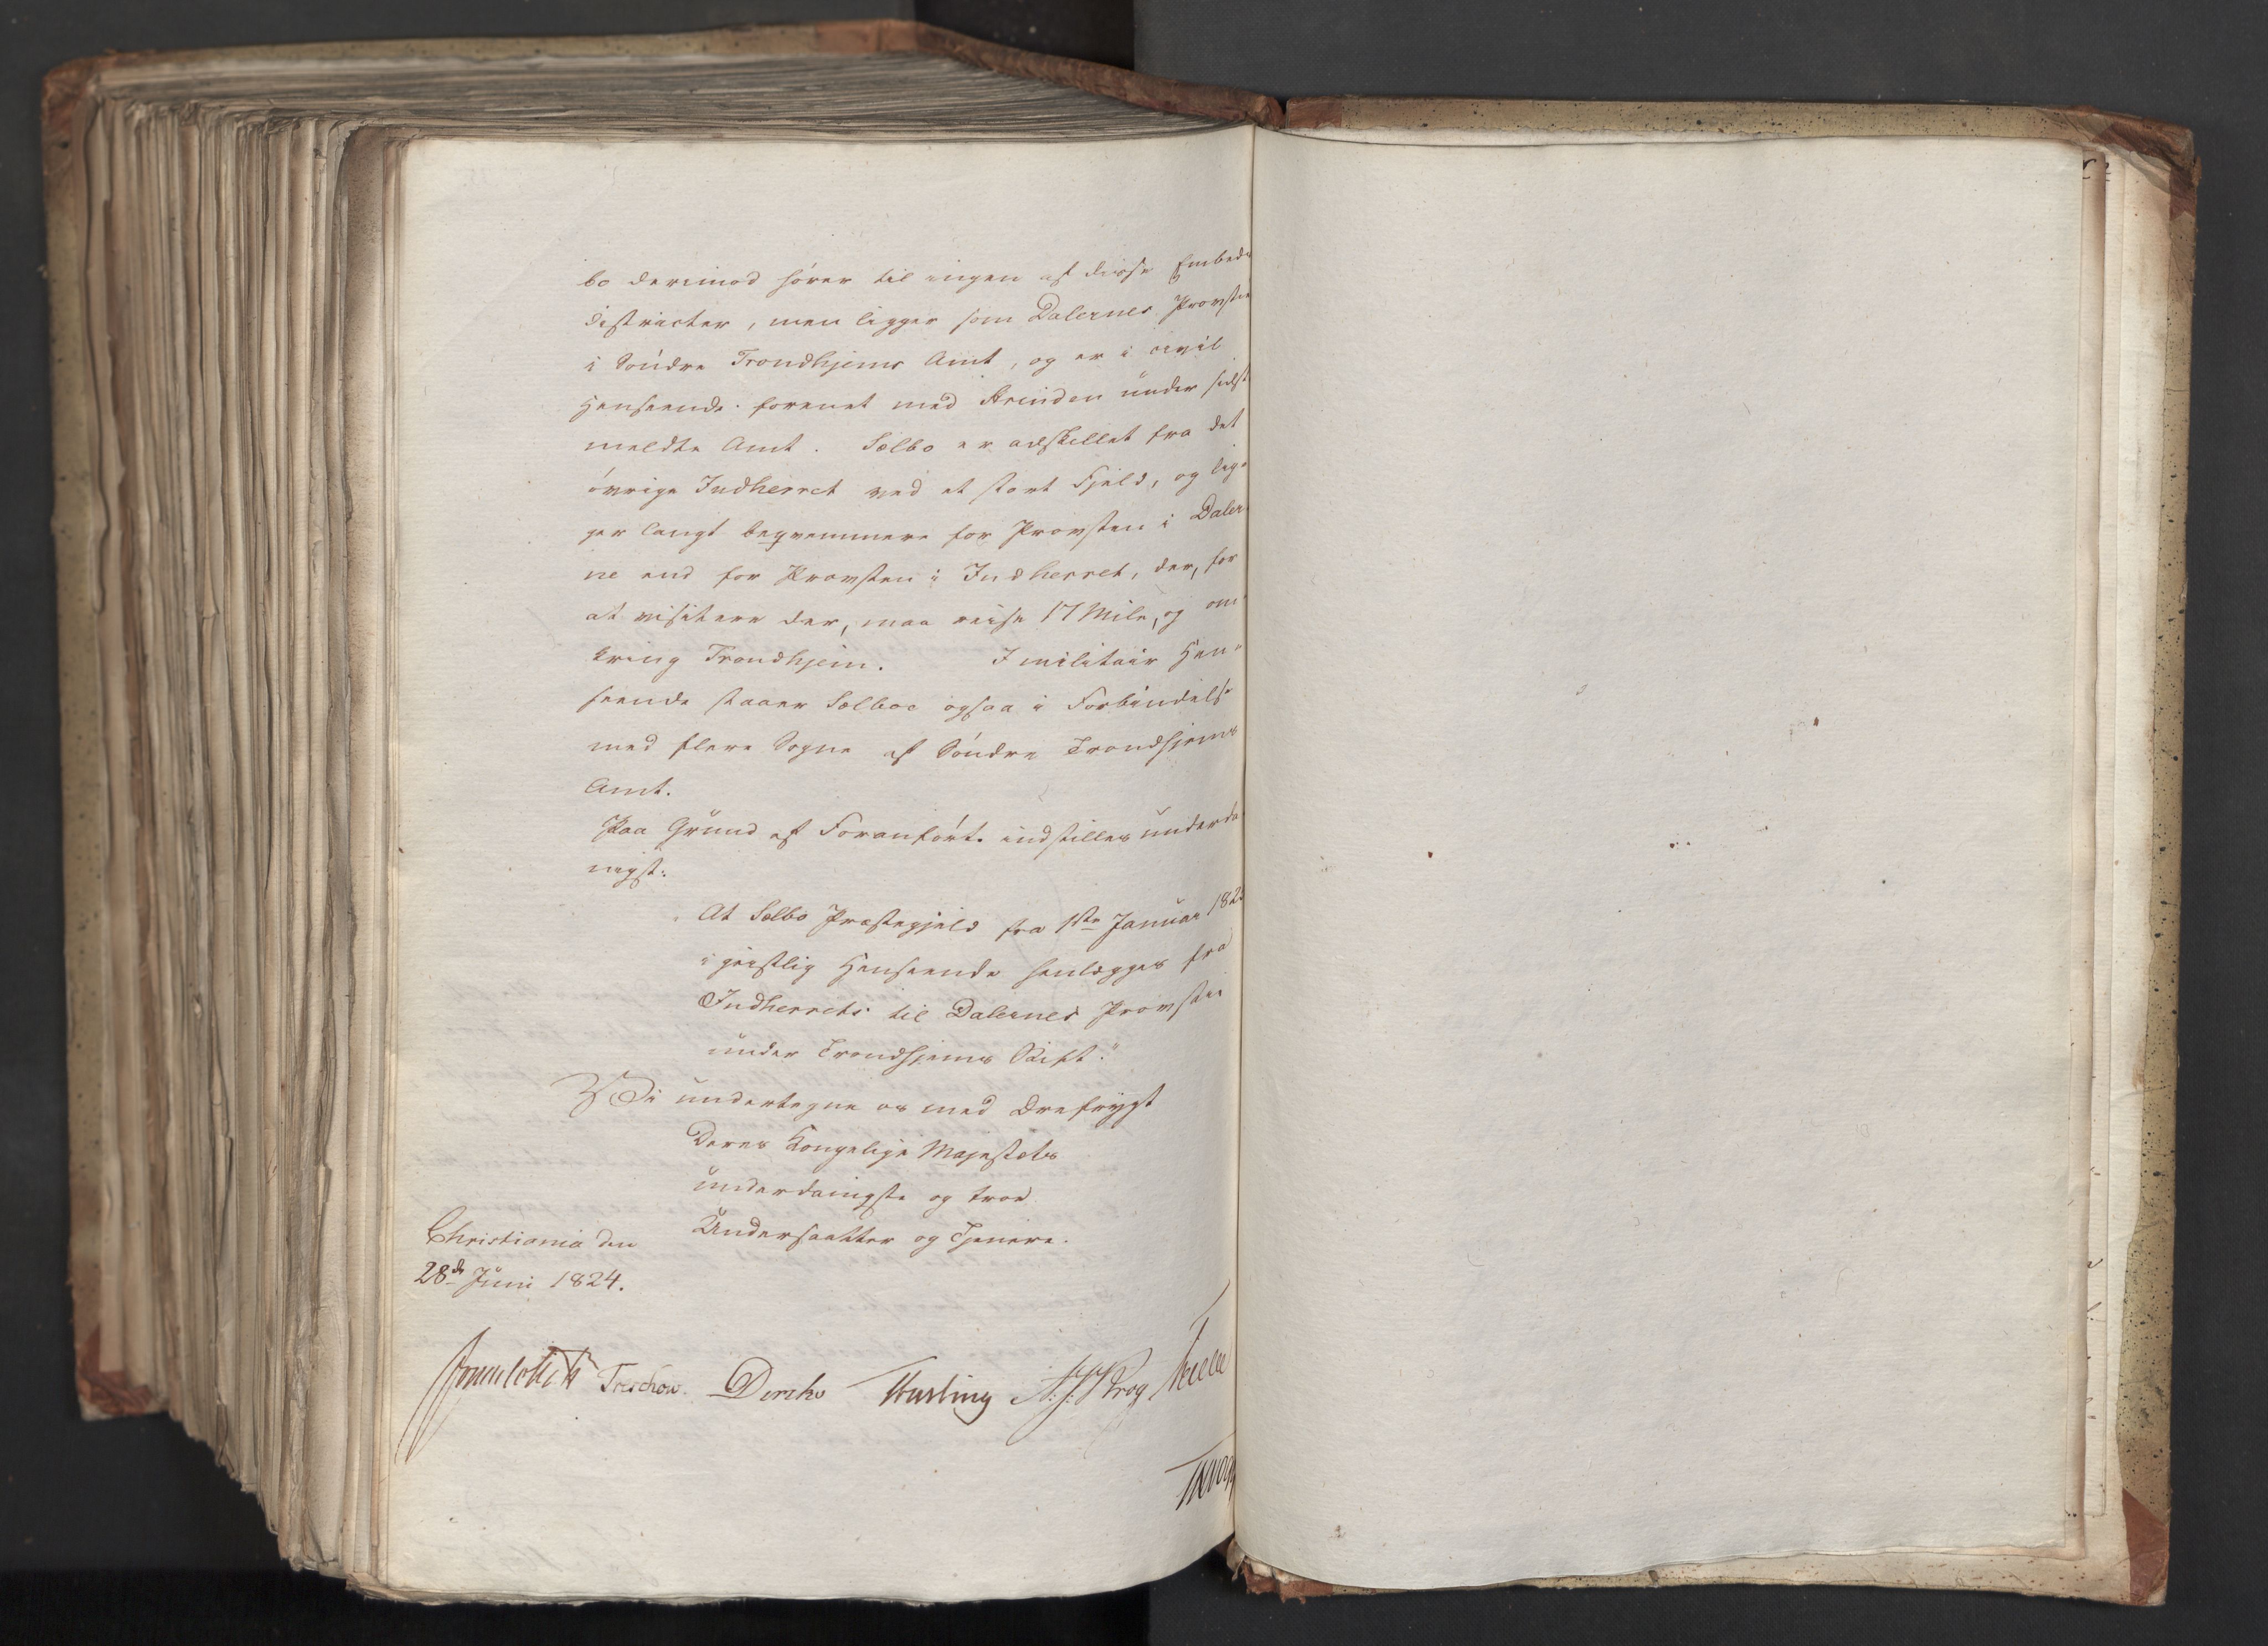 bo derimod hører til ingen af disse Embeds
districter, men ligger som Dalernes Provstie
i Søndre Trondhjems Amt, og er i civil
Henseende forenet med Strinden under sidst
meldte Amt. Sælbo er adskillet fra det
øvrige Indherret ved et stort Fjeld, og lig-
ger langt beqvemmere for Provsten i Daler
ne end for Provsten i Indherret, der, for
at visitere der, maa reise 17 Mile, og om
kring Trondhjem. I militair Hen-
seende staaer Sælboe ogsaa i Forbindelse
med flere Sogne af Søndre Trondhjems
Amt.
Paa Grund af Foranførte indstilles underda
nigst:
At Sælbo Præstegjeld fra 1ste Januar 182
i geistlig Henseende henlægges fra
Indherrets til Dalernes Provstie
under Trondhjems Stift."
Vi undertegne os med Ærefrygt
Deres Kongelige Majestæts
underdanigste og troe
Undersaatter og Tjenere.
Christiania den
28de Juni 1824.
Sommerhielm Treschow. Diriks Fasting A. J. Krog